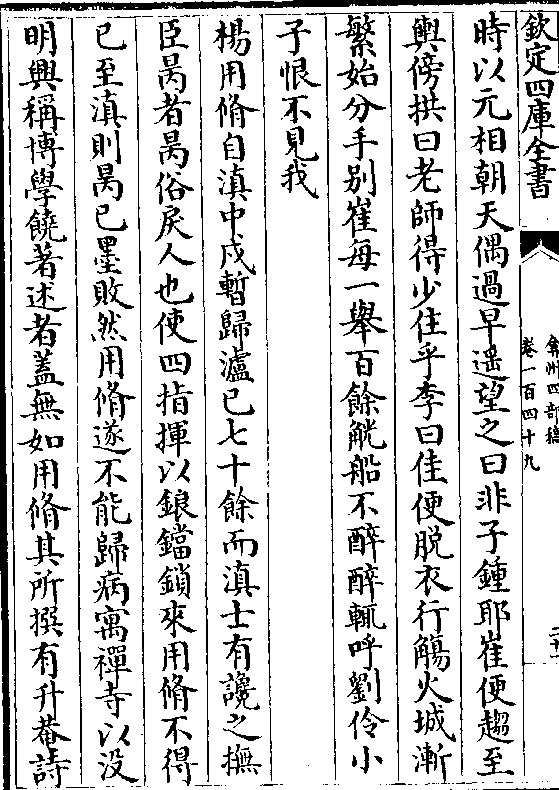 欽定四庫全書
弇州四部稿
卷一百四十九
二十一
時以元相朝天偶過早遥望之曰非子鍾耶崔便趨至
輿傍拱曰老師得少住乎李曰佳便脱衣行觴火城漸
繁始分手别崔每一舉百餘觥船不醉醉輒呼劉伶小
子恨不見我
楊用脩自滇中戍暫歸瀘已七十餘而滇士有讒之撫
臣昺者昺俗戾人也使四指揮以鋃鐺鎖來用脩不得
已至滇則昺已墨敗然用脩遂不能歸病寓禪寺以没
明興稱博學饒著述者蓋無如用脩其所撰有升菴詩